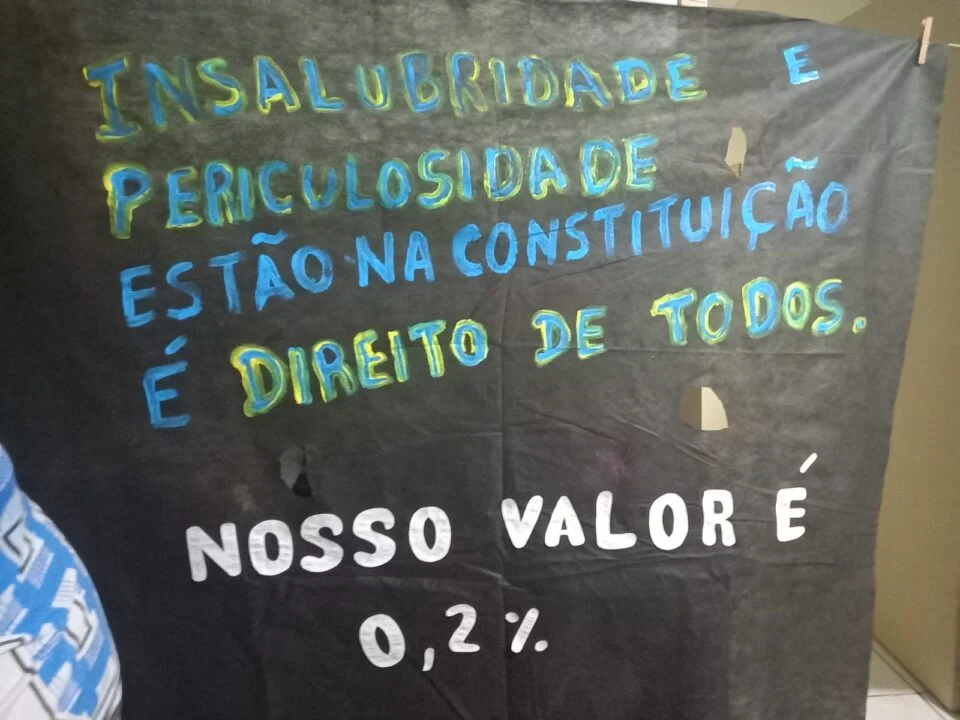 INSALUBRIDADE E
PERICULOSIDADE
ESTÃO NA CONSTITUIÇÃO
É DIREITO DE TODOS.
NOSSO VALOR É
0,2%